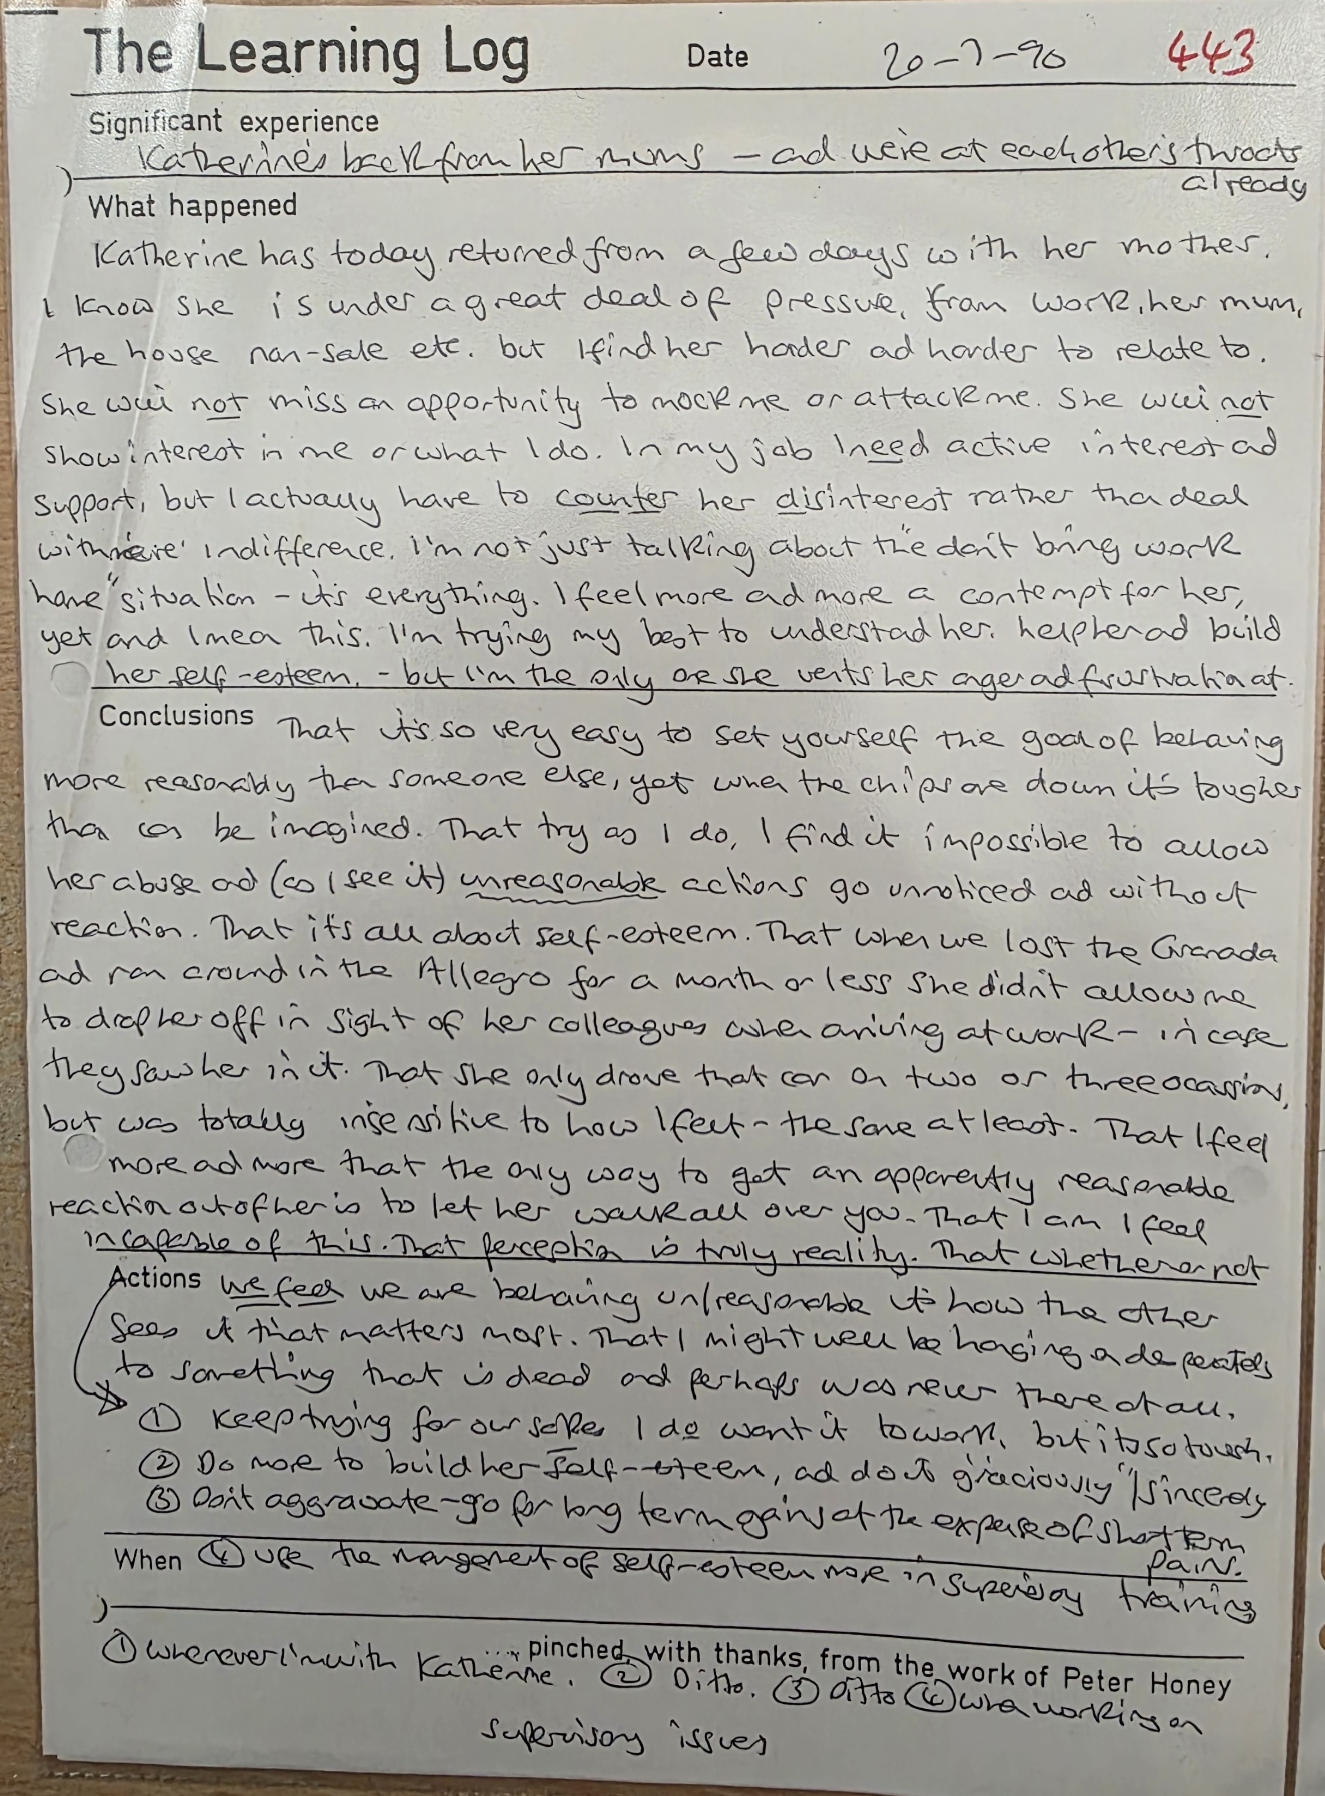 The Learning Log Date 20-7-90 443
Significant experience
Katherine's back from her mums - ad we're at each other's throats
already
What happened
Katherine has today returned from a few days with her mother.
I know she is under a great deal of pressure, from work, her mum,
the house non-sale etc. but I find her harder ad harder to relate to.
She will not miss an opportunity to mock me or attack me. She will not
show interest in me or what I do. In my job I need active interest ad
support, but I actually have to counter her disinterest rather than deal
with 'mere' indifference. I'm not just talking about the "don't bring work
home" situation - it's everything. I feel more ad more a contempt for her,
yet and I mean this. I'm trying my best to understad her. help her ad build
her self-esteem. - but I'm the only one she vents her anger ad frustration at.
Conclusions That it's so very easy to set yourself the goal of behaving
more reasonably than someone else, yet when the chips are down it's tougher
than can be imagined. That try as I do, I find it impossible to allow
her abuse ad (as I see it) unreasonable actions go unnoticed ad without
reaction. That it's all about self-esteem. That when we lost the Granada
ad ran around in the Allegro for a month or less she didn't allow me
to drop her off in sight of her colleagues when arriving at work - in case
they saw her in it. That she only drove that car on two or three ocassions,
but was totally insensitive to how I felt - the same at least. That I feel
more ad more that the only way to get an apparently reasonable
reaction out of her is to let her walk all over you. That I am I feel
incapable of this. That perception is truly reality. That whether or not
Actions we feel we are behaving un/reasonable it's how the other
sees it that matters most. That I might well be hanging on desperately
to something that is dead and perhaps was never there at all.
① Keep trying for our sakes I do want it to work, but it's so tough.
② Do more to build her self-esteem, ad do it graciously"/sincerely
③ Don't aggravate - go for long term gains at the expense of short term
pain.
When ④ use the management of self-esteem more in supervisory training
.... pinched, with thanks, from the work of Peter Honey
① Whenever I'm with Katherine. ② Ditto. ③ Ditto ④ when working on
supervisory issues